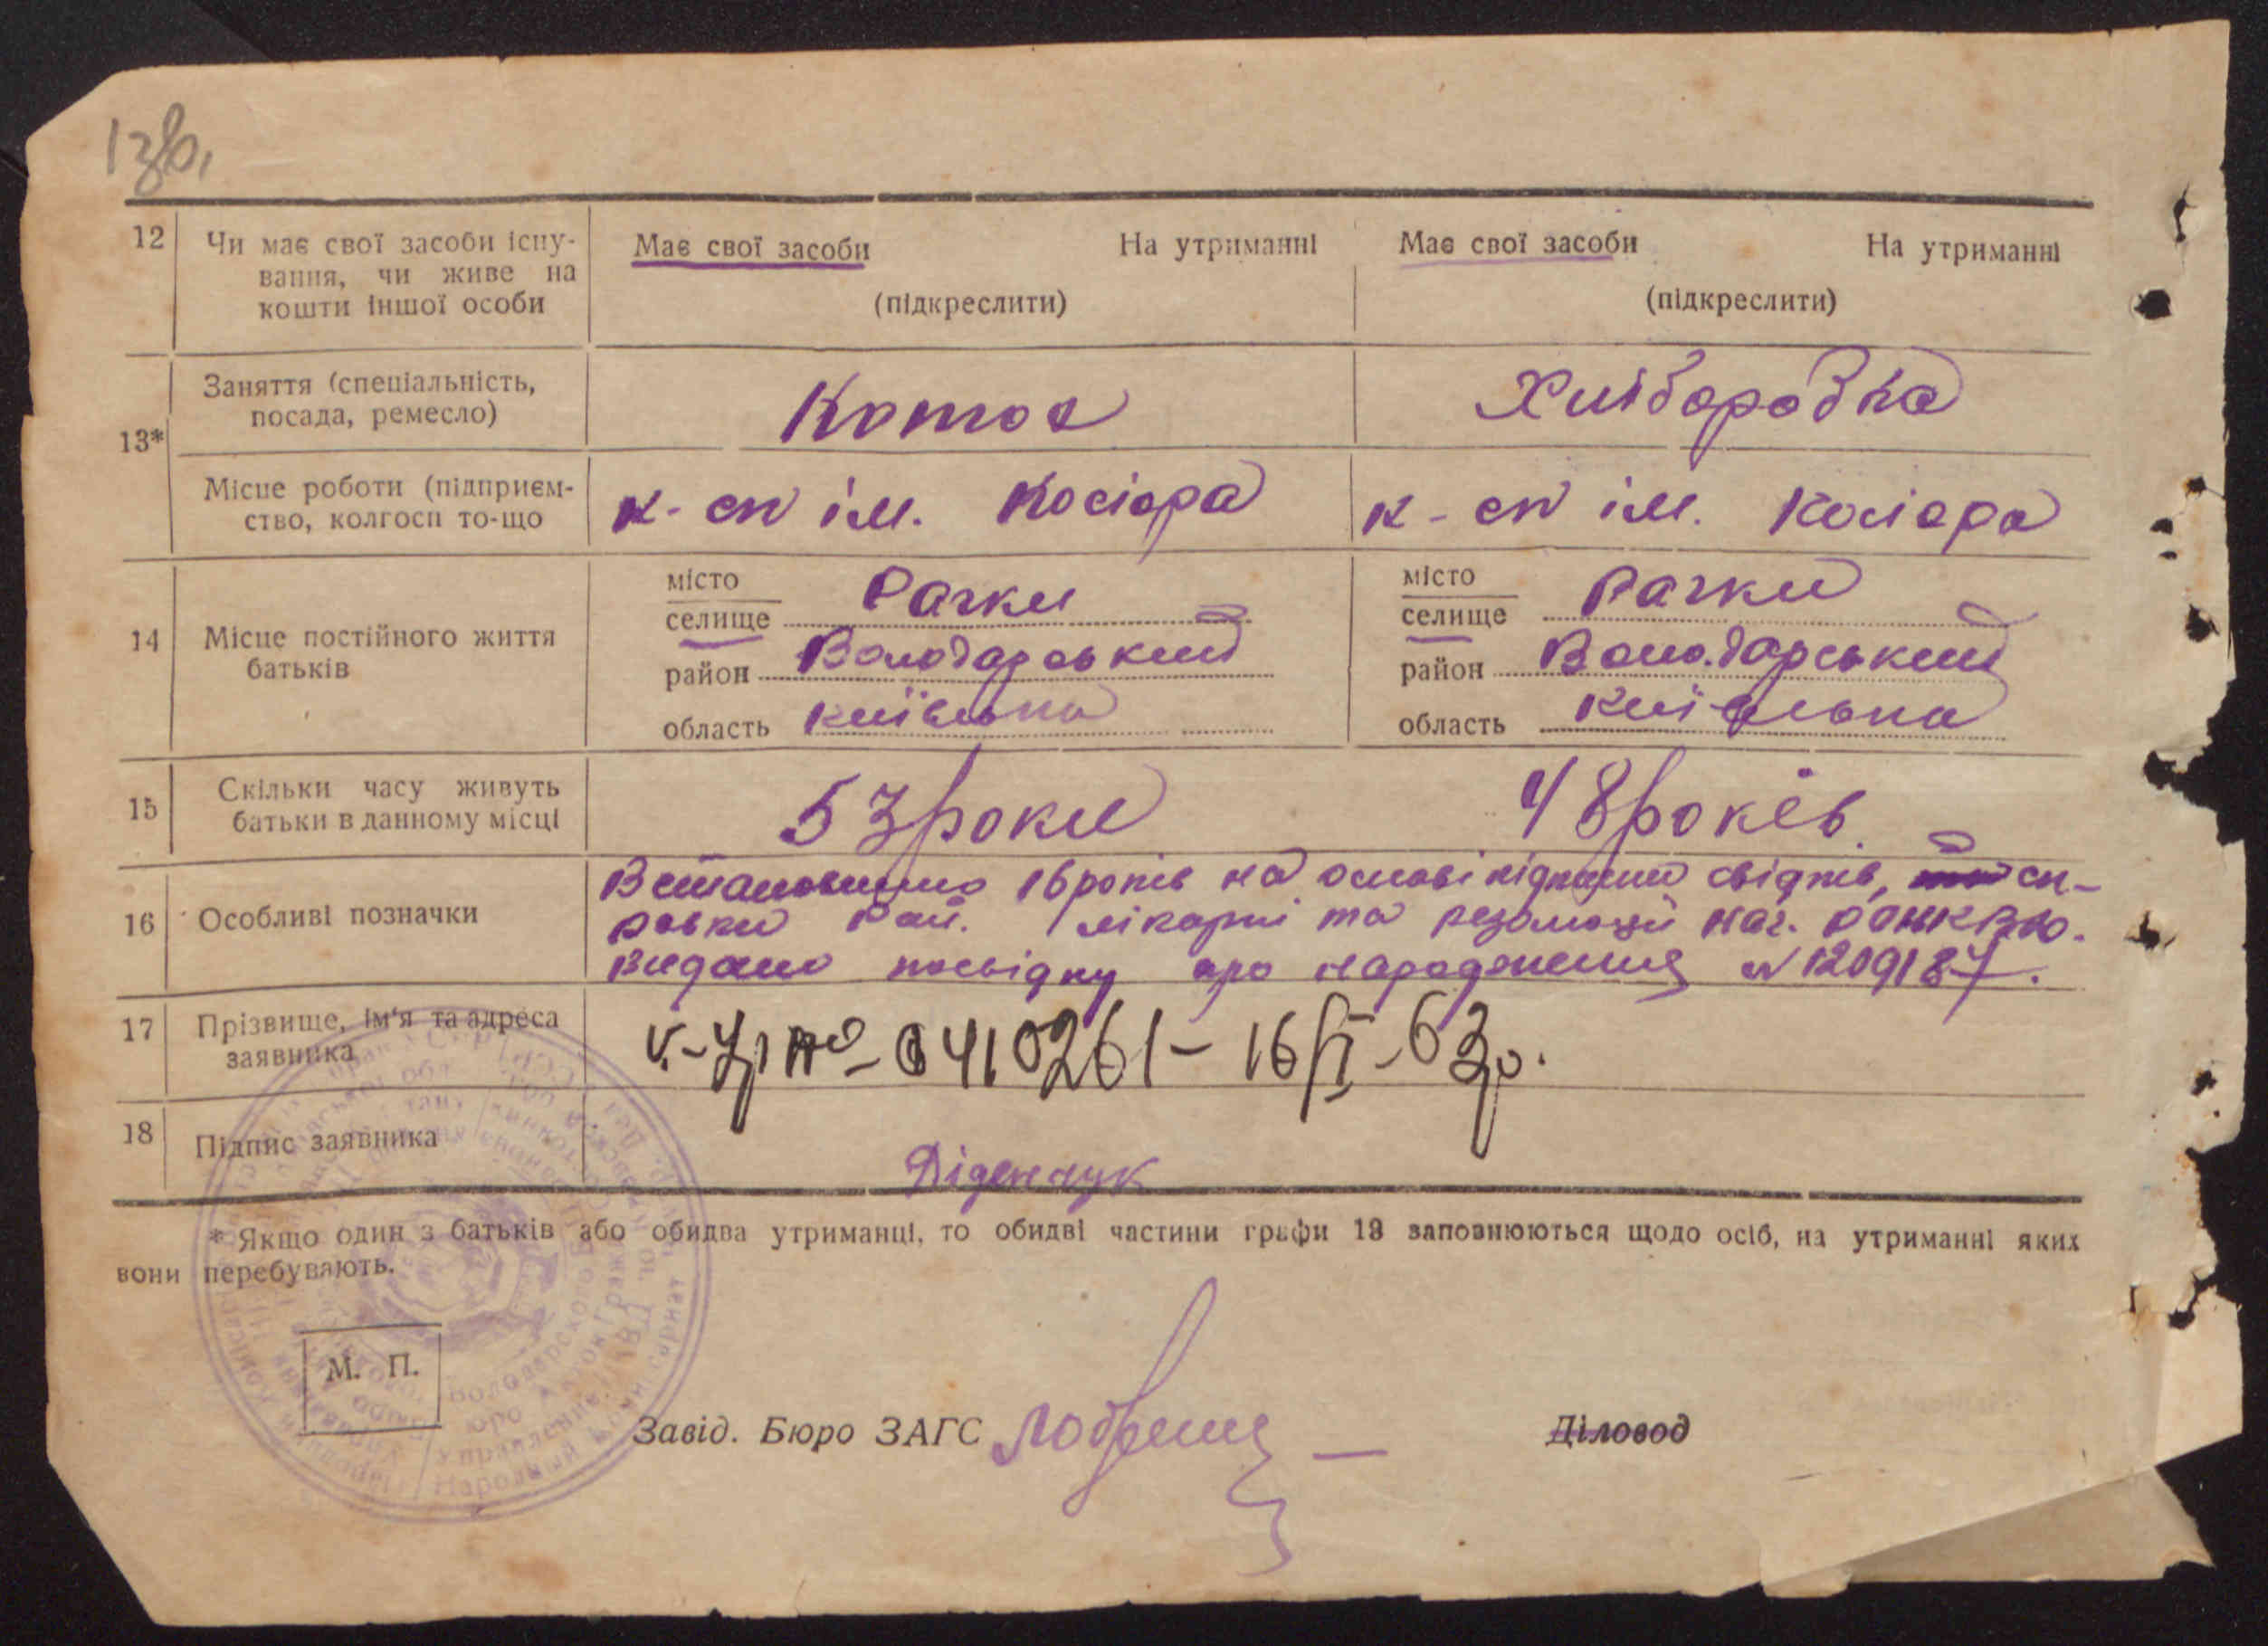 13 зв.
12 Чи має свої засоби існу- Має свої засоби На утриманні Має свої засоби На утриманні
вання, чи живе на
кошти іншої особи (підкреслити) (підкреслити)
Заняття (спеціальність,
посада, ремесло) Хліборобка
13*
Місце роботи (підприєм- к-сп ім. Косіора к-сп ім. Косіора
ство, колгосп то-що
місто Рачки місто Рачки
селище селище
14 Місце постійного життя район Володарський район Володарський
батьків
область київська область київська
15 Скільки часу живуть 53 роки 48 років
батьки в данному місці
Встановлено 16 років на основі свідків, сп-
16 Особливі позначки равки рай. лікарні та резолюції нач.
Видано посвідку про народження № 120918
17 Прізвище, ім'я та адреса № 0410261 - 16/II-63р.
заявника
18 Підпис заявника Діденчук
* Якщо один з батьків або обидва утриманці, то обидві частини графи 13 заповнюються щодо осіб, на утриманні яких
вони перебувають.
М. П.
Завід. Бюро ЗАГС Діловод